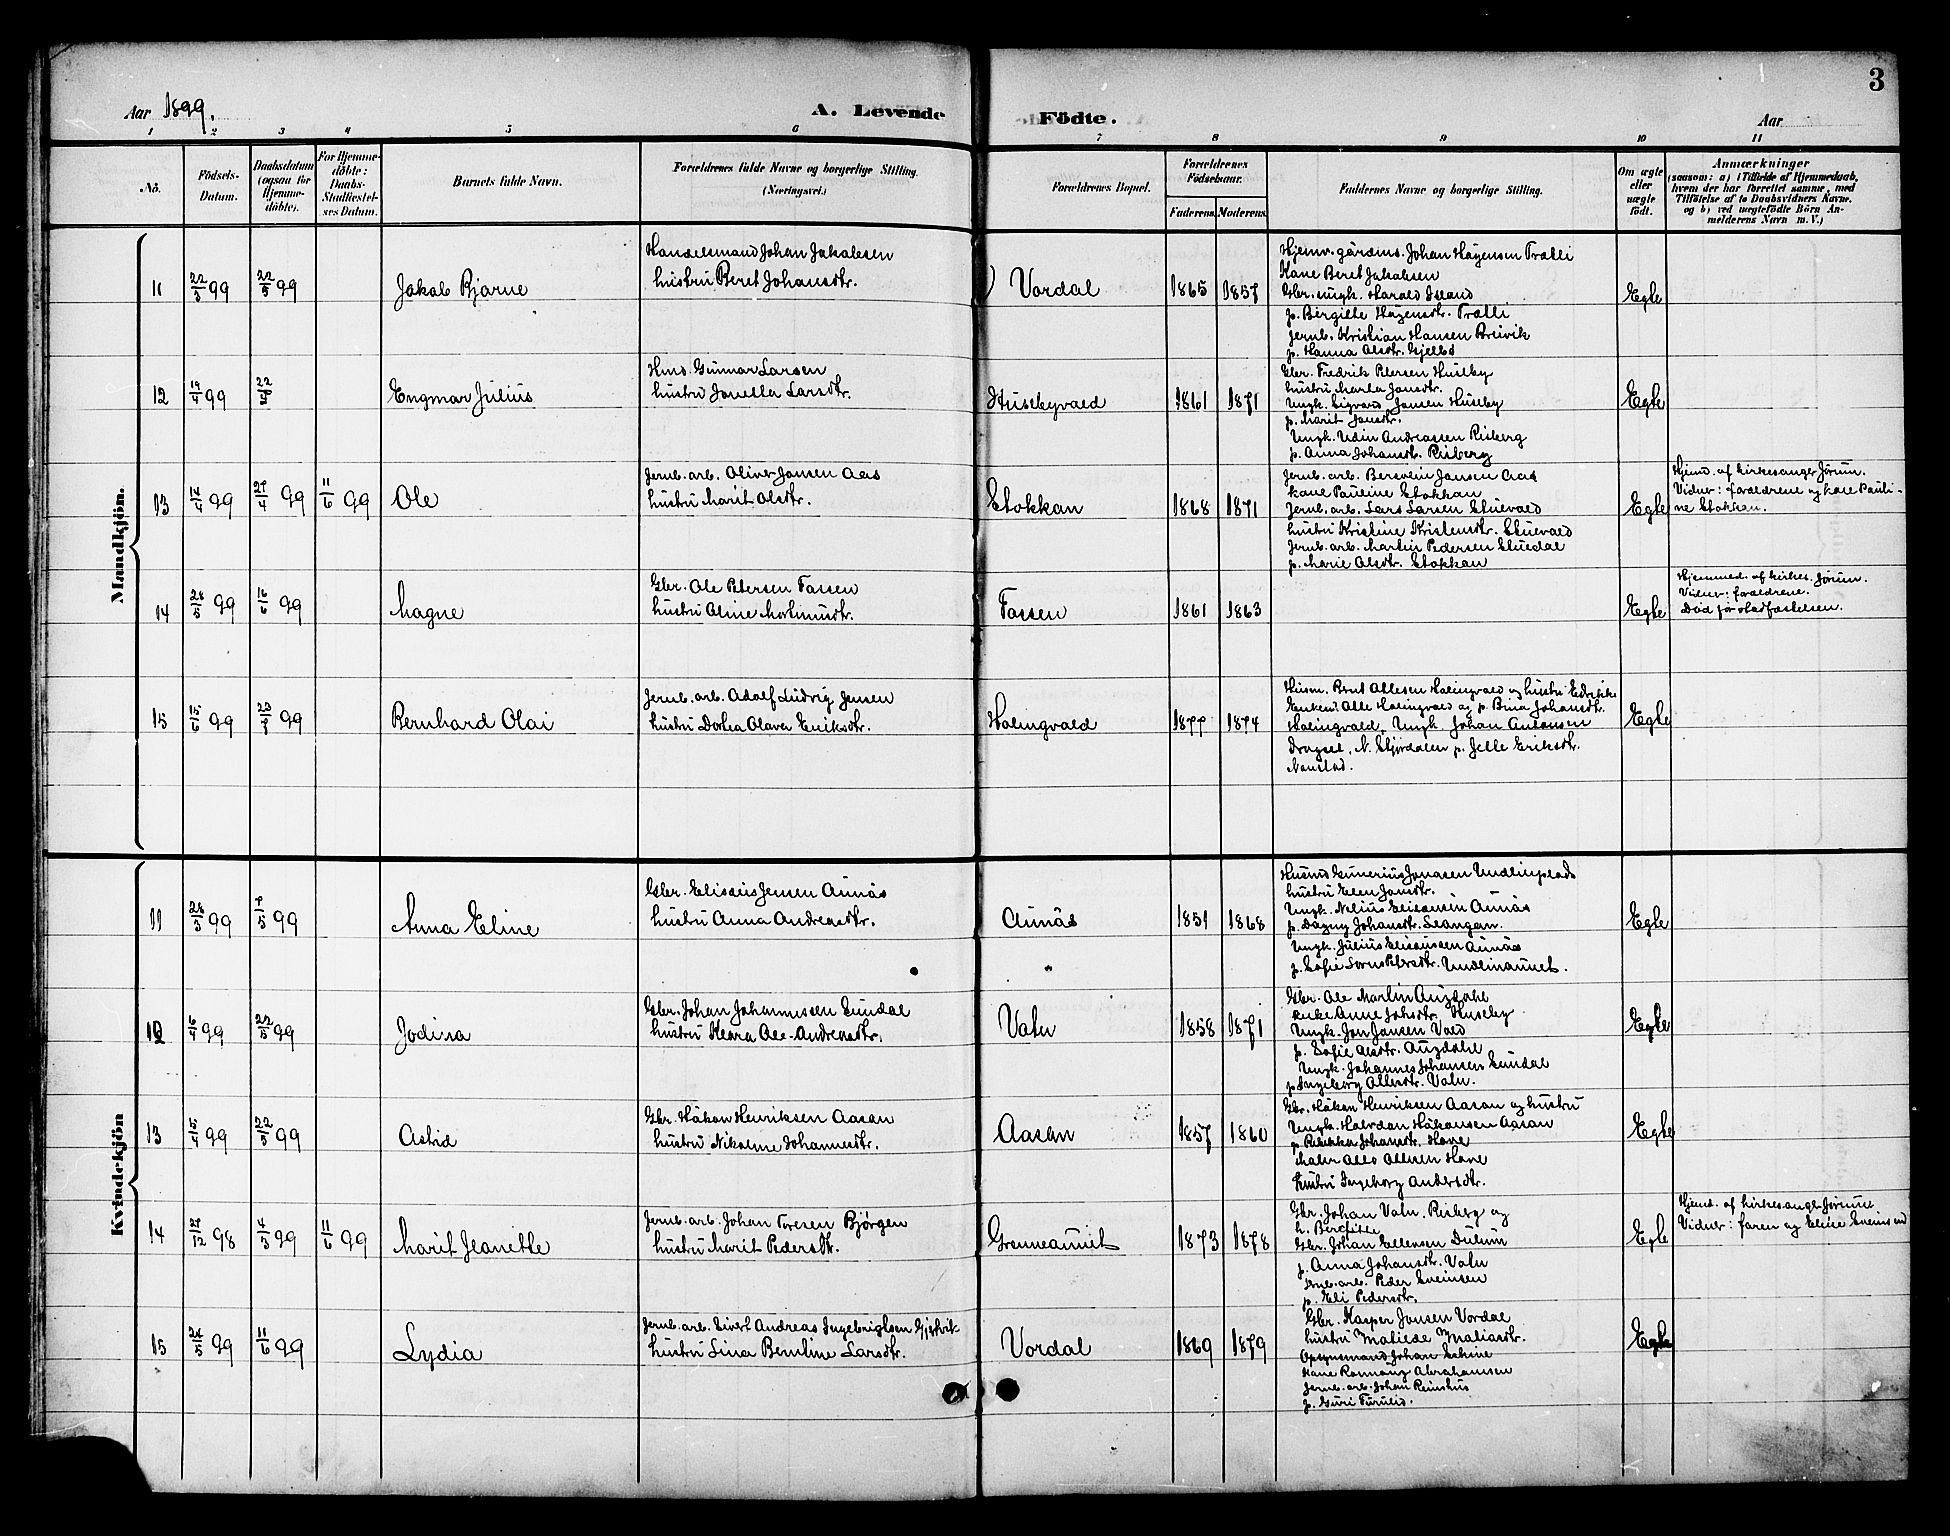 3
Aar 1899.
A. Levende
Födte.
Aar
1 2 3 4 5 6 7 8 9 10 11
No.
Födsels-Datum.
Daabsdatum (ogsaa for Hjemme-döbte).
For Hjemme-döbte: Daabs-Stadfæstel-ses Datum.
Barnets fulde Navn.
Forældrenes fulde Navne og borgerlige Stilling. (Næringsvei.)
Forældrenes Bopæl.
Forældrenes Födselsaar.
Faderens. Moderens.
Faddernes Navne og borgerlige Stilling.
Om ægte eller uægte födt.
Anmærkninger
(saasom: a) i Tilfælde af Hjemmedaab, hvem der har forrettet samme, med Tilföielse af to Daabsvidners Navne. og b) ved uægtefödte Börn An-melderens Navn m. V.)
Mandkjön.
11 22/3 99 22/5 99 Jakob Bjarne
Handelsmand Johan Jakobsen
hustru Beret Johansdtr.
Vordal 1865 1857
Hjemv. gårdms. Johan Høyensen Trætli
Kone Beret Jakobsen
Gbr. ungk. Harald Island
p. Birgitte Høyensdtr. Trætli
Jernb. Kristian Hansen Breivik
p. Hanna Olsdtr. Gjelbo
Egte
12 19/4 99 22/5 Engmar Julius
Hmd. Gunnar Larsen
hustru Janetta Larsdtr.
Husebyvald 1861 1871
Gbr. Fredrik Petersen Huseby
hustru Marta Jonsdtr.
Ungk. Sigvard Jonsen Huseby
p. Marit Jonsdtr.
Ungk. Udin Andreassen Risberg
p. Anna Johansdtr. Risberg
Egte
13 12/4 99 27/4 99 11/6 99 Ole
Jernb. arb. Oliver Jonsen Aas
hustru Marit Olsdtr.
Stokkan 1868 1871
Jernb. arb. Bersvein Jonsen Aas
kone Pauline Stokkan
Jernb. arb. Lars Larsen Stuevald
hustru Kristine Kristensdtr. Stuevald
Jernb. arb. Martin Pedersen Stuedal
p. Marie Olsdtr. Stokkan
Egte
Hjemd. af kirkesanger Jörum.
Vidner: forældrene og kone Pauli-
ne Stokkan.
14 28/5 99 16/6 99 Magne
Gbr. Ole Petersen Fossen
hustru Oline Mortinusdtr.
Fossen 1861 1863
Egte
Hjemmed. af kirkes. Jörum.
Vidner: forældrene.
Död för stadfæstelsen.
15 15/6 99 23/7 99 Bernhard Olai
Jernb. arb. Adolf Ludvig Jensen
hustru Dortea Olava Eriksdtr.
Holmgvald 1877 1874
Husm. Bernt Ottesen Holmgvald og hustru Edrikke
Enkem. Otte Holmgvald og p. Bina Johansdtr.
Holmgvald, Ungk. Johan Antonsen
Dragset, N. Stjördalen p. Jelle Eriksdtr.
Naustad.
Egte
Kvindekjön
11 28/3 99 7/5 99 Anna Eline
Gbr. Elisæus Jensen Aunås
hustru Anna Andreasdtr.
Aunås 1851 1868
Husmd Gunerius Jonasen Undlinplads
hustru Elen Jonsdtr.
Ungk. Nelius Elisæusen Aunås
p. Dagny Johansdtr. Leangen.
Ungk. Julius Elisæusen Aunås
p. Sofie Lorns Petersdtr. Undlinaunet.
Egte
12 16/4 99 22/5 99 Jodina
Gbr. Johan Johannesen Sundal
hustru Klara Ole-Andreasdtr.
Valn 1858 1871
Gbr. Ole Martin Augdahl
enke Anne Johsdtr. Huseby
Ungk. Jon Jonsen Vold
p. Sofie Olsdtr. Augdahl
Ungk. Johannes Johansen Sundal
p. Ingeborg Ottersdtr. Valn.
Egte
13 15/4 99 22/5 99 Astrid
Gbr. Håkon Henriksen Aasan
hustru Nikoline Johannesdtr.
Aasan 1857 1860
Gbr. Håkon Henriksen Aasan og hustru
Ungk. Halvdan Håkonsen Aasan
p. Rebekka Johansdtr. Hove
Maler Otto Ottesen Hove
hustru Ingeborg Andersdtr.
Egte
14 27/12 98 4/5 99 11/6 99 Marit Jeanette
Jernb. arb. Johan Toresen Bjørgen
hustru Marit Pedersdtr.
Grønneaunet 1873 1878
Gbr. Johan Valn. Risberg og
h. Bergitte
Gbr. Johan Ellevsen Dullum
p. Anna Johansdtr. Valn
Jernb. arb. Peder Sveinsen
p. Eli Pedersdtr.
Egte
Hjemd. af kirkesanger Jörum.
Vidner: faren og Eline Sveinsen
15 24/5 99 11/6 99 Lydia
Jernb. arb. Sivert Andreas Ingebrigtsen Gjertvik
hustru Lina Berntine Larsdtr.
Vordal 1869 1879
Gbr. Kasper Jonsen Vordal
hustru Matilde Mattiasdtr.
Opsynsmand Johan Schive
Kone Romaug Abrahamsen
Jernb. arb. Johan Reinshus
p. Guri Furulid.
Egte